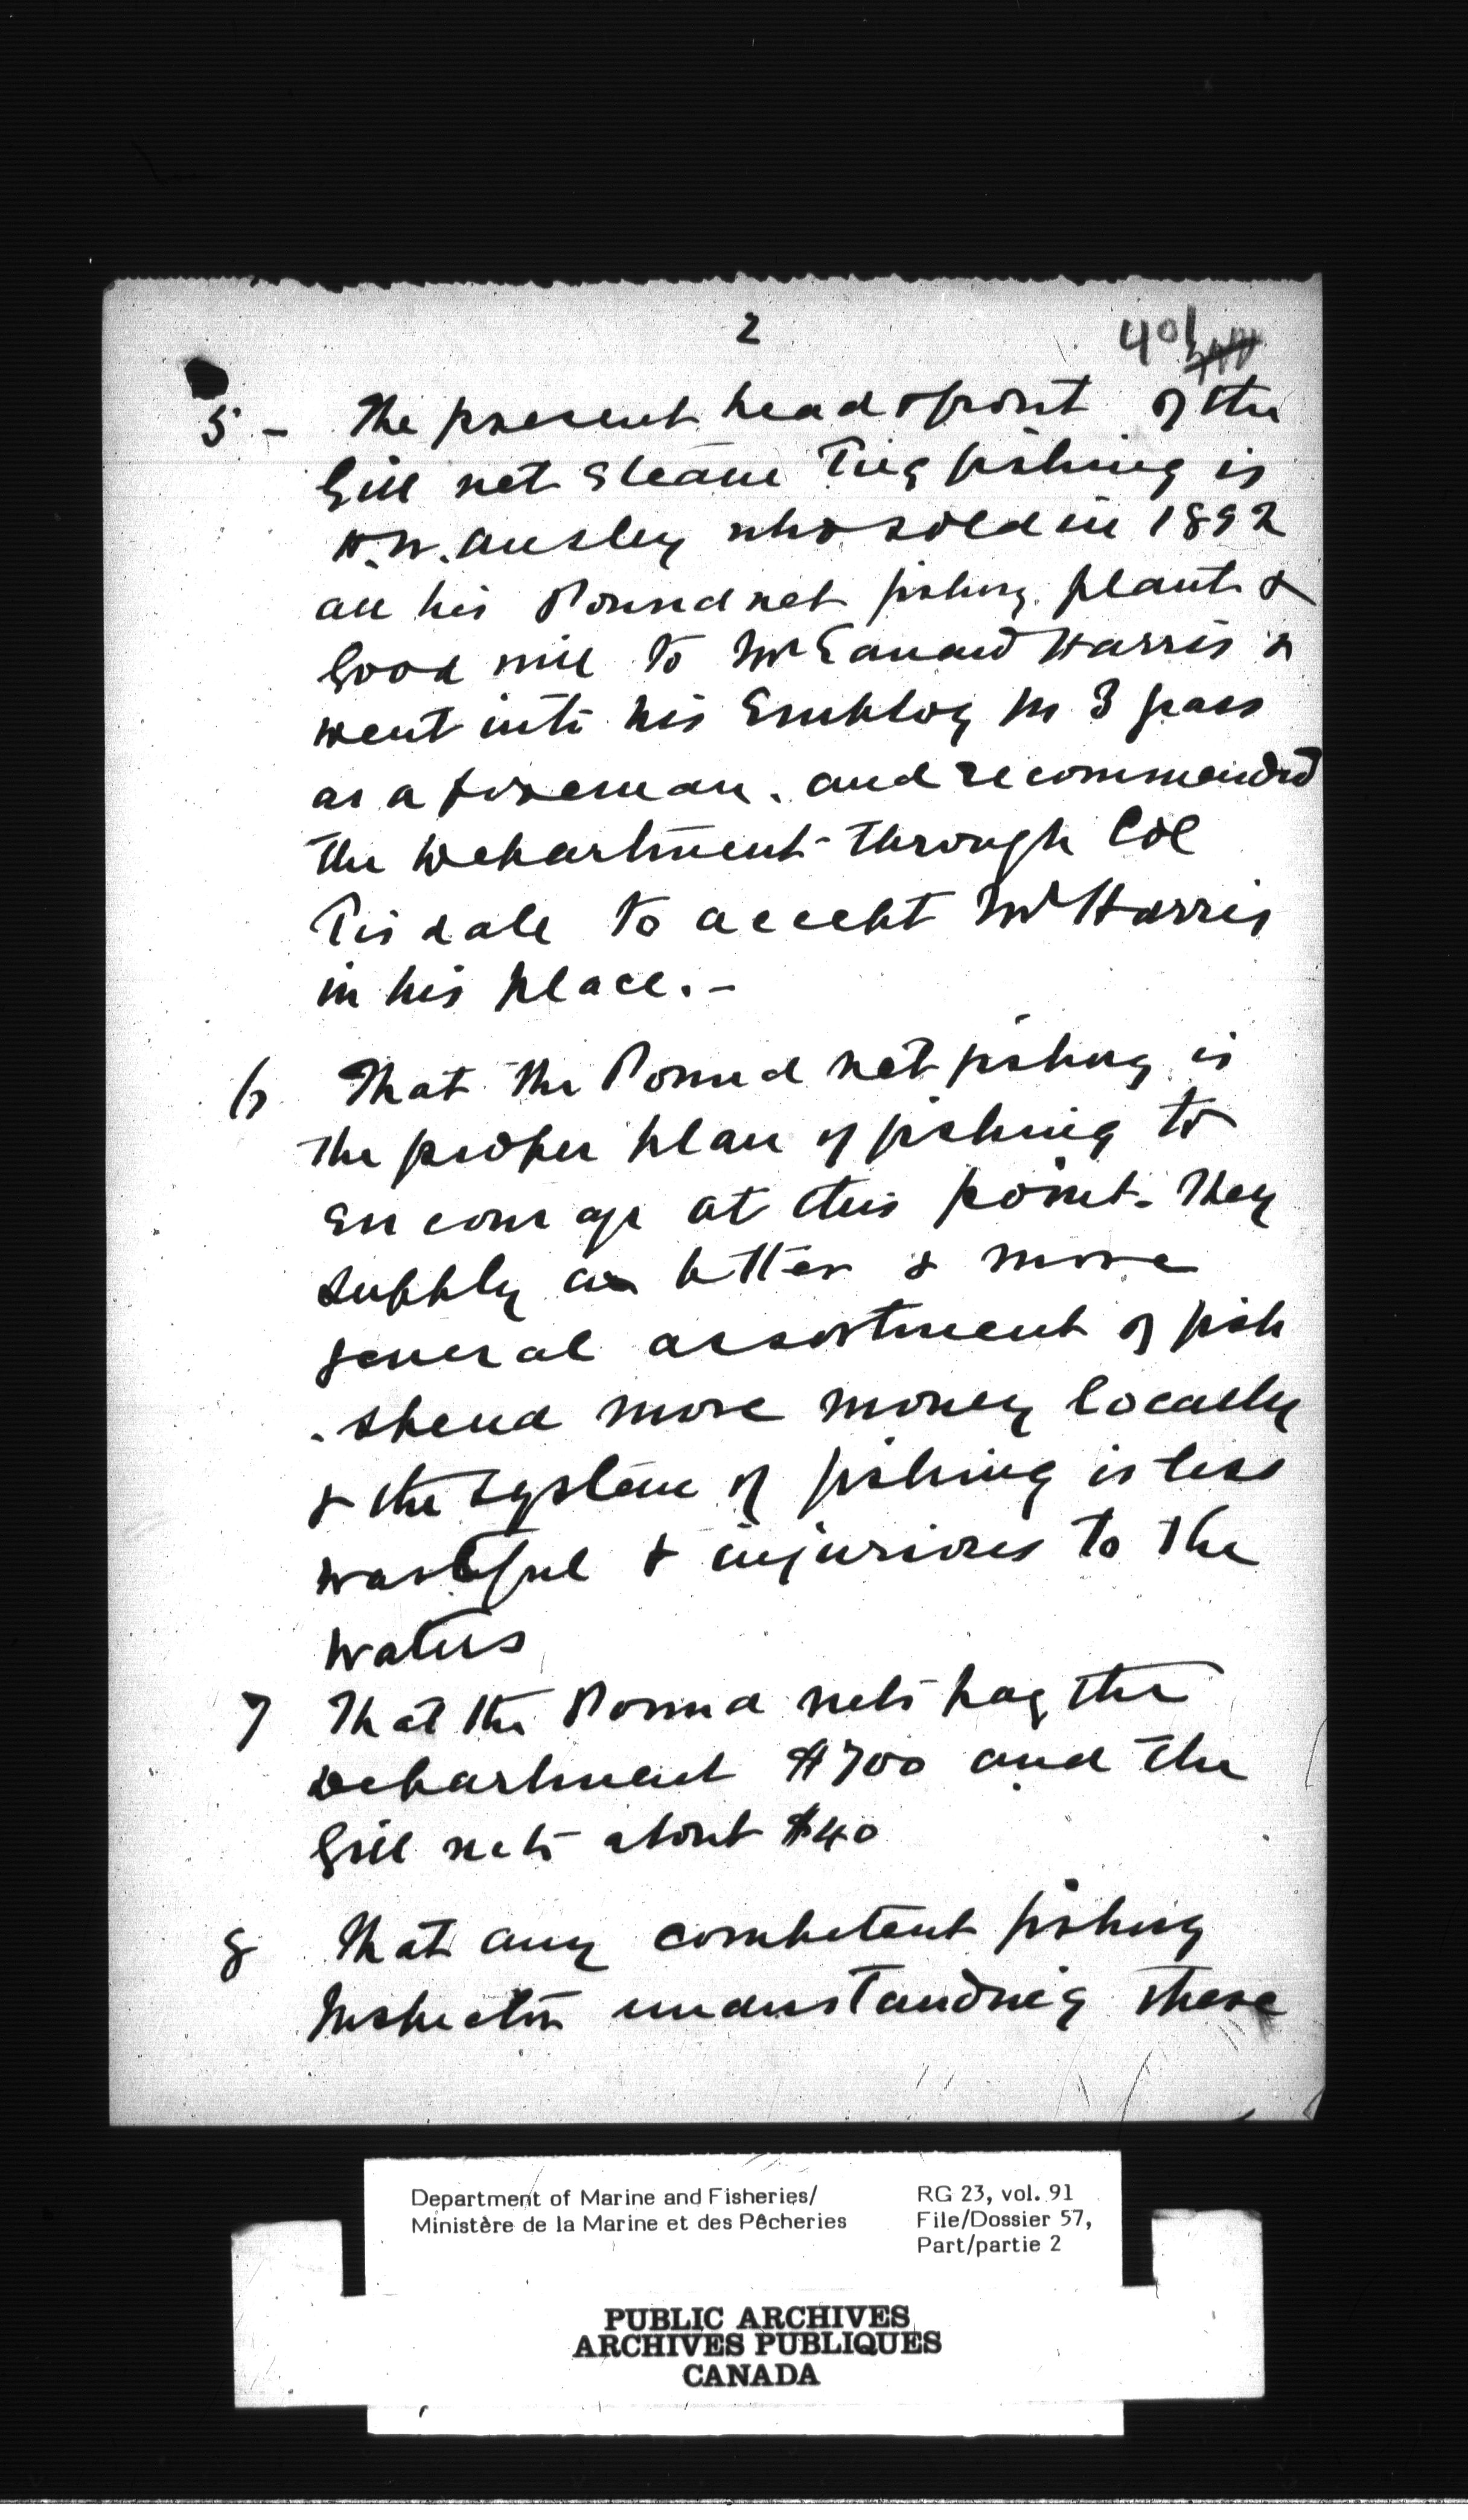 2
401
5 - The present head & front of the
Gill net Steam Tug fishing is
H.W. Ansley who sold in 1892
all his Pound net fishing plant &
Good will to Mr Edward Harris &
went into his Employ for 3 years
as a foreman. and recommended
the Department through Col
Tisdale to accept Mr Harris
in his place. -
6 That the Pound net fishing is
the proper plan of fishing to
encourage at this point. They
supply a better & more
general assortment of fish
. spend more money locally
& the system of fishing is less
wasteful & injurious to the
waters
7 That the Pound nets pay the
Department $700 and the
Gill nets about $40
8 That any competent fishing
Inspector understanding these
Department of Marine and Fisheries/
Ministère de la Marine et des Pêcheries
RG 23, vol. 91
File/Dossier 57,
Part/partie 2
PUBLIC ARCHIVES
ARCHIVES PUBLIQUES
CANADA